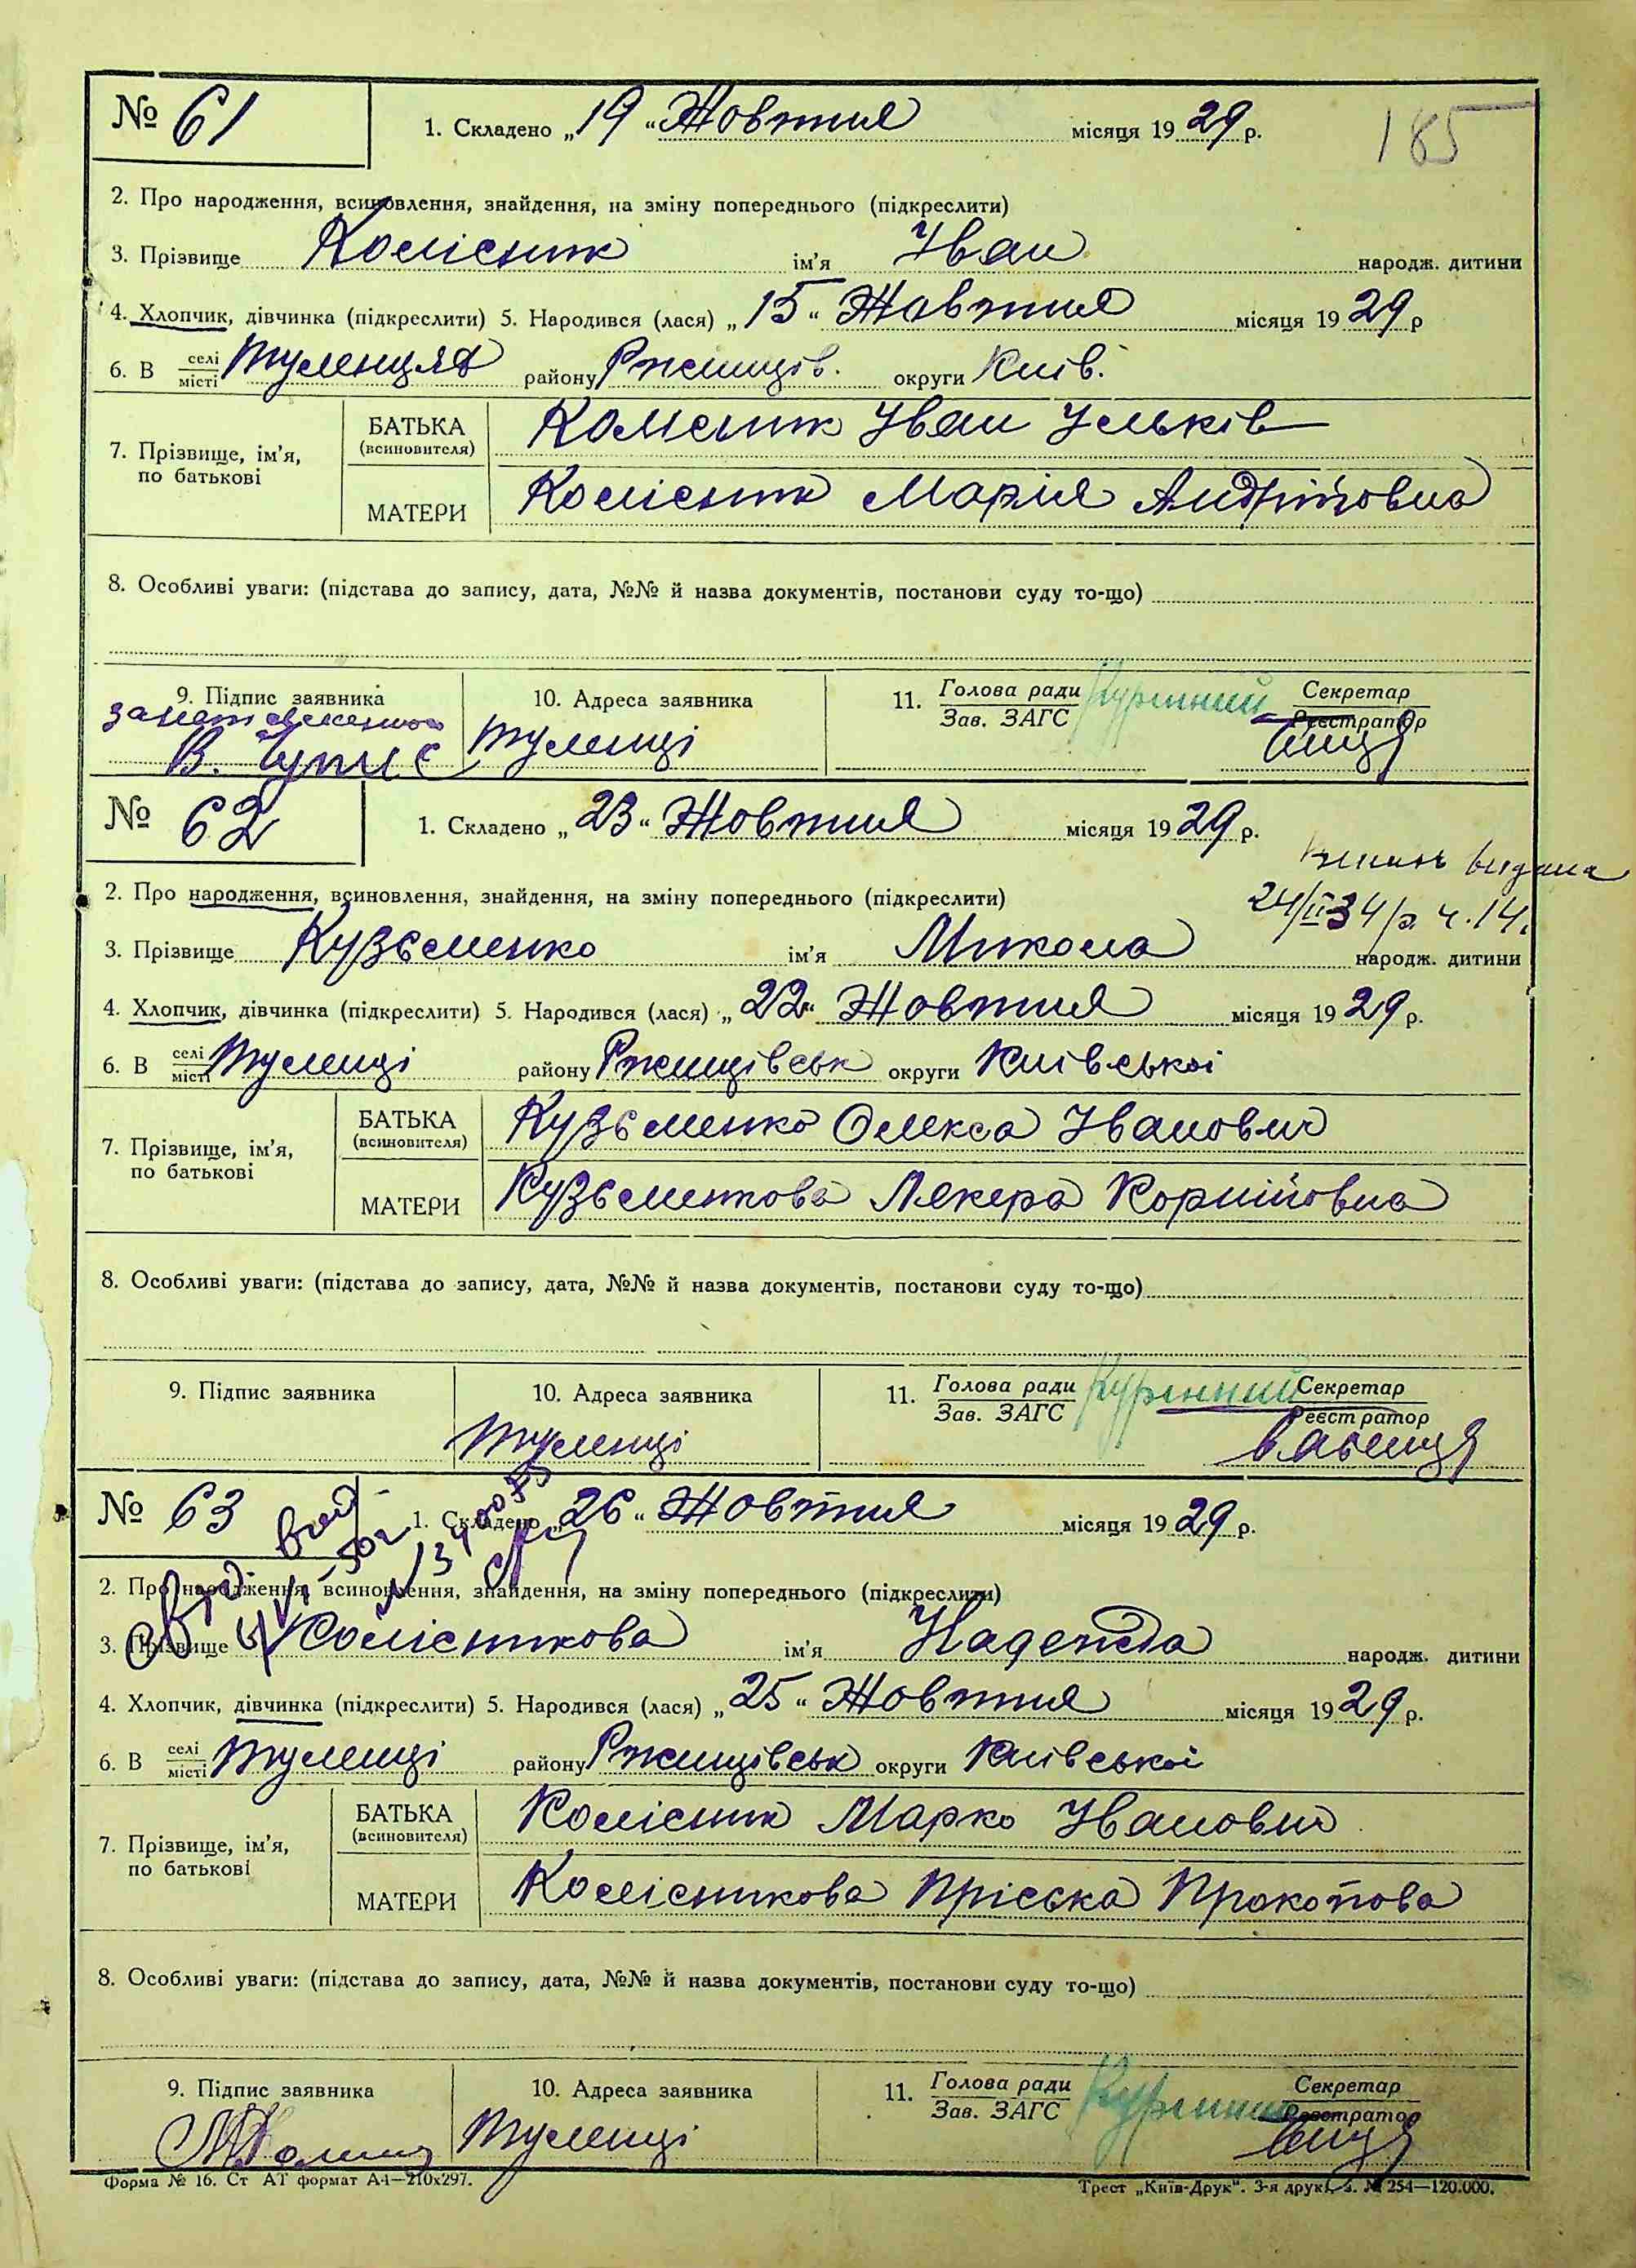 № 61 1. Складено „19“ Жовтня місяця 1929 р. 185
2. Про народження, всиновлення, знайдення, на зміну попереднього (підкреслити)
3. Прізвище Колісник ім'я Іван народж. дитини
4. Хлопчик, дівчинка (підкреслити) 5. Народився (лася) „15“ Жовтня місяця 1929 р
6. В селі/місті Туленцях району Ржищів. округи Київ.
7. Прізвище, ім'я, по батькові
БАТЬКА (всиновителя) Колісник Іван Ільків
МАТЕРИ Колісник Марія Андріївна
8. Особливі уваги: (підстава до запису, дата, №№ й назва документів, постанови суду то-що)
9. Підпис заявника В.
10. Адреса заявника Туленці
11. Голова ради/Зав. ЗАГС Курінний Секретар/Реєстратор
№ 62 1. Складено „23“ Жовтня місяця 1929 р.
видана
24/II 34 р. ч. 14.
2. Про народження, всиновлення, знайдення, на зміну попереднього (підкреслити)
3. Прізвище Кузьменко ім'я Микола народж. дитини
4. Хлопчик, дівчинка (підкреслити) 5. Народився (лася) „22“ Жовтня місяця 1929 р.
6. В селі/місті Туленці району Ржищівськ округи Київської
7. Прізвище, ім'я, по батькові
БАТЬКА (всиновителя) Кузьменко Олекса Іванович
МАТЕРИ Кузьменкова Лякера Корнійовна
8. Особливі уваги: (підстава до запису, дата, №№ й назва документів, постанови суду то-що)
9. Підпис заявника
10. Адреса заявника Туленці
11. Голова ради/Зав. ЗАГС Курінний Секретар/Реєстратор
№ 63 1. Складено „26“ Жовтня місяця 1929 р.
2. Про народження, всиновлення, знайдення, на зміну попереднього (підкреслити)
3. Прізвище Колісникова ім'я Надежда народж. дитини
4. Хлопчик, дівчинка (підкреслити) 5. Народився (лася) „25“ Жовтня місяця 1929 р.
6. В селі/місті Туленці району Ржищівськ округи Київської
7. Прізвище, ім'я, по батькові
БАТЬКА (всиновителя) Колісник Марко Іванович
МАТЕРИ Колісникова Пріська Прокопова
8. Особливі уваги: (підстава до запису, дата, №№ й назва документів, постанови суду то-що)
9. Підпис заявника
10. Адреса заявника Туленці
11. Голова ради/Зав. ЗАГС Курінний Секретар/Реєстратор
Форма № 16. Ст АТ формат А4—210х297. Трест „Київ-Друк“. 3-я друк. № 254—120.000.